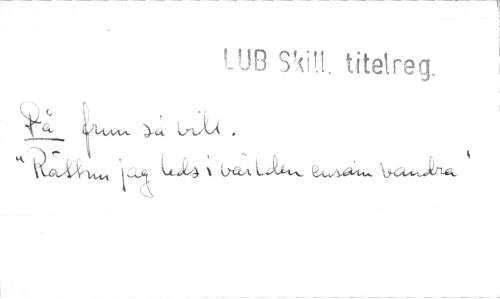 LUB Skill. titelreg.
På frun så vill.
"Rättnu jag leds i världen ensam vandra"